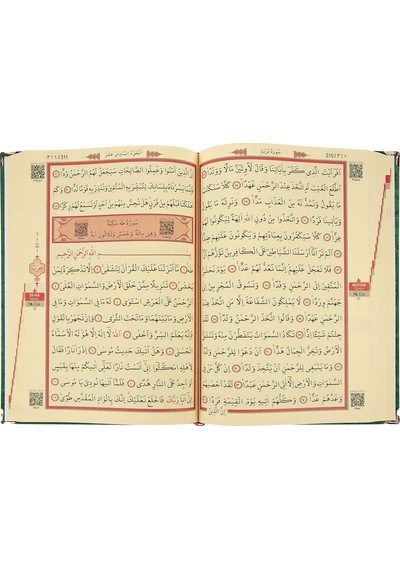 310/٣١٠
سُورَةُ مَرْيَمَ
اَفَرَاَيْتَ الَّذ۪ي كَفَرَ بِاٰيَاتِنَا وَقَالَ لَاُو۫تَيَنَّ مَالًا وَوَلَدًا
اَطَّلَعَ الْغَيْبَ اَمِ اتَّخَذَ عِنْدَ الرَّحْمٰنِ عَهْدًا كَلَّا سَنَكْتُبُ
مَا يَقُولُ وَنَمُدُّ لَهُ مِنَ الْعَذَابِ مَدًّا وَنَرِثُهُ مَا يَقُولُ
وَيَأْت۪ينَا فَرْدًا وَاتَّخَذُوا مِنْ دُونِ اللّٰهِ اٰلِهَةً لِيَكُونُوا لَهُمْ
عِزًّا كَلَّا سَيَكْفُرُونَ بِعِبَادَتِهِمْ وَيَكُونُونَ عَلَيْهِمْ
ضِدًّا اَلَمْ تَرَ اَنَّا اَرْسَلْنَا الشَّيَاط۪ينَ عَلَى الْكَافِر۪ينَ تَؤُزُّهُمْ اَزًّا
فَلَا تَعْجَلْ عَلَيْهِمْ اِنَّمَا نَعُدُّ لَهُمْ عَدًّا يَوْمَ نَحْشُرُ
الْمُتَّق۪ينَ اِلَى الرَّحْمٰنِ وَفْدًا وَنَسُوقُ الْمُجْرِم۪ينَ اِلٰى
جَهَنَّمَ وِرْدًا لَا يَمْلِكُونَ الشَّفَاعَةَ اِلَّا مَنِ اتَّخَذَ عِنْدَ
الرَّحْمٰنِ عَهْدًا وَقَالُوا اتَّخَذَ الرَّحْمٰنُ وَلَدًا لَقَدْ
جِئْتُمْ شَيْـًٔا اِدًّا تَكَادُ السَّمٰوَاتُ يَتَفَطَّرْنَ مِنْهُ وَتَنْشَقُّ
الْاَرْضُ وَتَخِرُّ الْجِبَالُ هَدًّا اَنْ دَعَوْا لِلرَّحْمٰنِ وَلَدًا
وَمَا يَنْبَغ۪ي لِلرَّحْمٰنِ اَنْ يَتَّخِذَ وَلَدًا اِنْ كُلُّ مَنْ فِي
السَّمٰوَاتِ وَالْاَرْضِ اِلَّٓا اٰتِي الرَّحْمٰنِ عَبْدًا لَقَدْ اَحْصٰيهُمْ
وَعَدَّهُمْ عَدًّا وَكُلُّهُمْ اٰت۪يهِ يَوْمَ الْقِيٰمَةِ فَرْدًا
اِنَّ الَّذ۪ينَ
MERYEM
16. Cüz
اَلْجُزْءُ السَّادِسَ عَشَرَ
٣١١/311
اِنَّ الَّذ۪ينَ اٰمَنُوا وَعَمِلُوا الصَّالِحَاتِ سَيَجْعَلُ لَهُمُ الرَّحْمٰنُ وُدًّا
فَاِنَّمَا يَسَّرْنَاهُ بِلِسَانِكَ لِتُبَشِّرَ بِهِ الْمُتَّق۪ينَ وَتُنْذِرَ بِه۪ قَوْمًا لُدًّا
وَكَمْ اَهْلَكْنَا قَبْلَهُمْ مِنْ قَرْنٍ هَلْ تُحِسُّ مِنْهُمْ مِنْ اَحَدٍ اَوْ تَسْمَعُ لَهُمْ رِكْزًا
سُورَةُ طٰهٰ مَكِّيَّةٌ
وَهِيَ مِائَةٌ وَخَمْسٌ وَثَلَاثُونَ اٰيَةً
بِسْمِ اللّٰهِ الرَّحْمٰنِ الرَّح۪يمِ
طٰهٰ مَا اَنْزَلْنَا عَلَيْكَ الْقُرْاٰنَ لِتَشْقٰى اِلَّا تَذْكِرَةً لِمَنْ
يَخْشٰى تَنْز۪يلًا مِمَّنْ خَلَقَ الْاَرْضَ وَالسَّمٰوَاتِ الْعُلٰى
اَلرَّحْمٰنُ عَلَى الْعَرْشِ اسْتَوٰى لَهُ مَا فِي السَّمٰوَاتِ وَمَا فِي
الْاَرْضِ وَمَا بَيْنَهُمَا وَمَا تَحْتَ الثَّرٰى وَاِنْ تَجْهَرْ بِالْقَوْلِ
فَاِنَّهُ يَعْلَمُ السِّرَّ وَاَخْفٰى اَللّٰهُ لَا اِلٰهَ اِلَّا هُوَ لَهُ الْاَسْمَاءُ
الْحُسْنٰى وَهَلْ اَتٰيكَ حَد۪يثُ مُوسٰى اِذْ رَاٰ نَارًا فَقَالَ
لِاَهْلِهِ امْكُثُوا اِنّ۪ي اٰنَسْتُ نَارًا لَعَلّ۪ي اٰت۪يكُمْ مِنْهَا بِقَبَسٍ
اَوْ اَجِدُ عَلَى النَّارِ هُدًى فَلَمَّا اَتٰيهَا نُودِيَ يَا مُوسٰى
اِنّ۪ي اَنَا رَبُّكَ فَاخْلَعْ نَعْلَيْكَ اِنَّكَ بِالْوَادِ الْمُقَدَّسِ طُوًى
TÂ-HÂ
16. Cüz